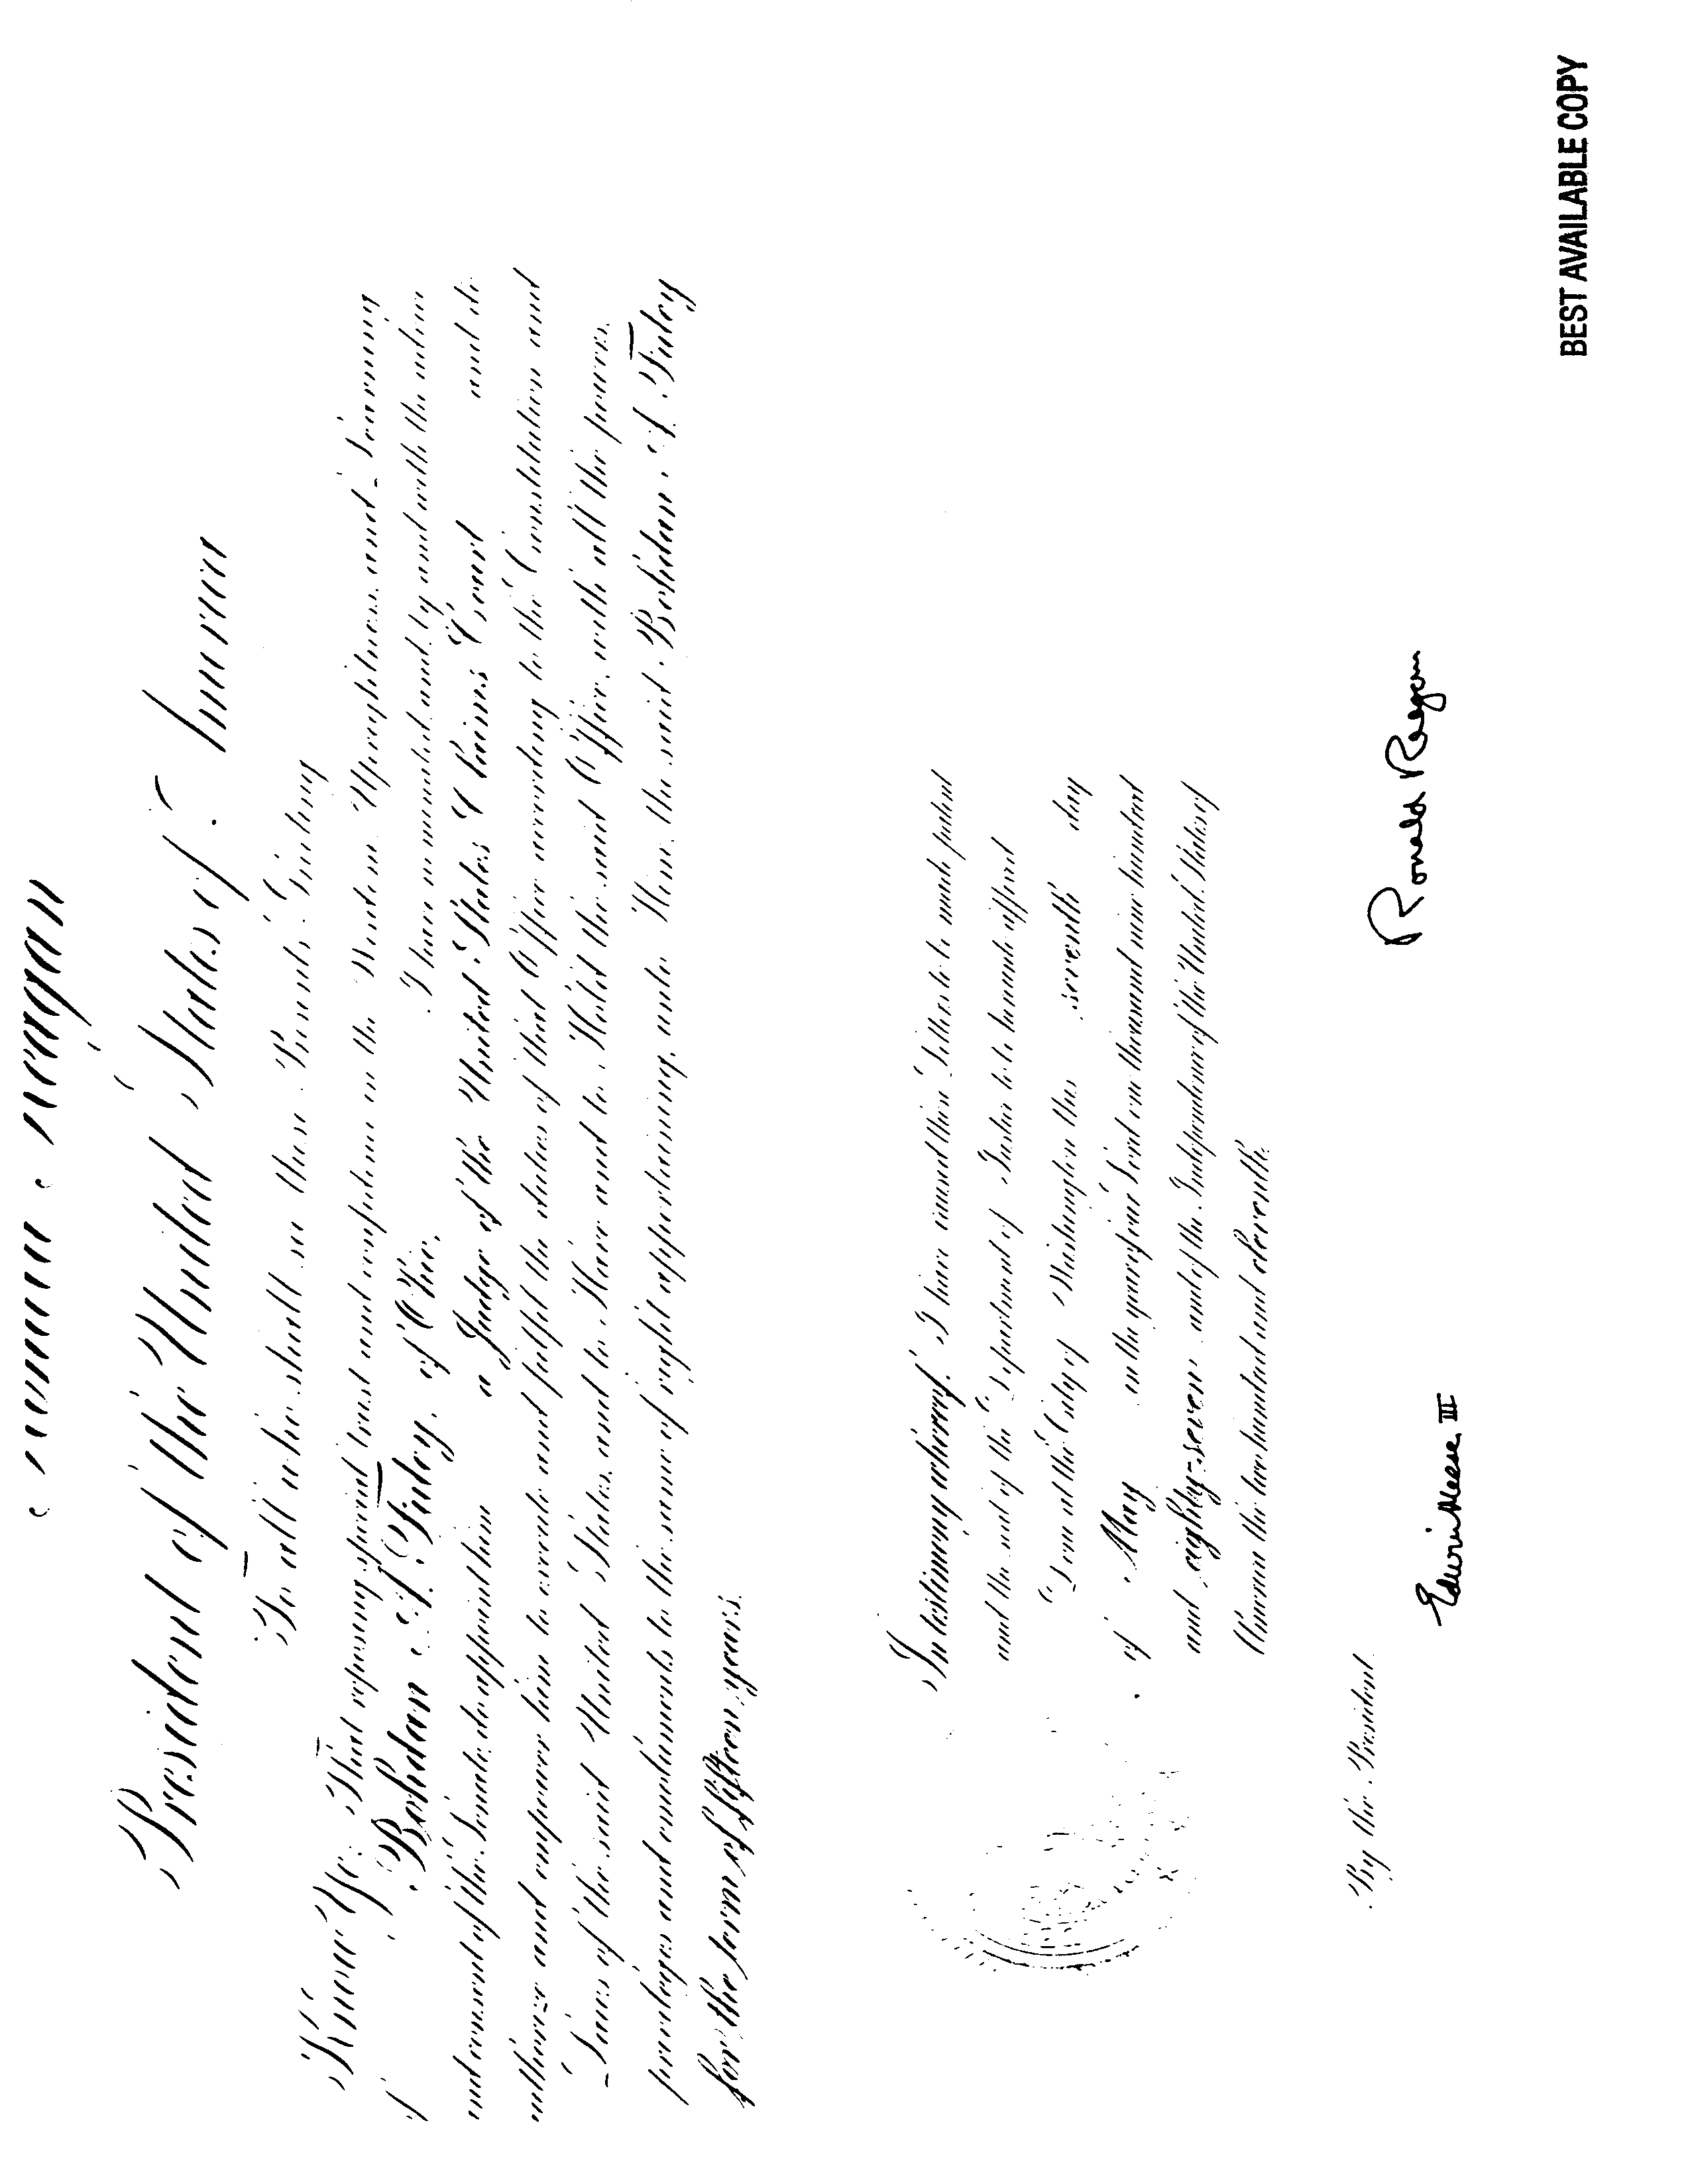 Ronald Reagan
President of the United States of America
To all who shall see these Presents, Greeting:
Know Ye; That reposing special trust and confidence in the Wisdom, Uprightness, and Learning
of Bohdan A. Futey, of Ohio, I have nominated, and, by and with the advice
and consent of the Senate, do appoint him a Judge of the United States Claims Court and do
authorize and empower him to execute and fulfil the duties of that Office according to the Constitution and
Laws of the said United States, and to Have and to Hold the said Office, with all the powers,
privileges and emoluments to the same of right appertaining, unto Him, the said Bohdan A. Futey
for the term of fifteen years.
In testimony whereof, I have caused these Letters to be made patent
and the seal of the Department of Justice to be hereunto affixed.
Done at the City of Washington this seventh day
of May in the year of our Lord one thousand nine hundred
and eighty-seven and of the Independence of the United States of
America the two hundred and eleventh.
By the President:
Ronald Reagan
Edwin Meese III
BEST AVAILABLE COPY